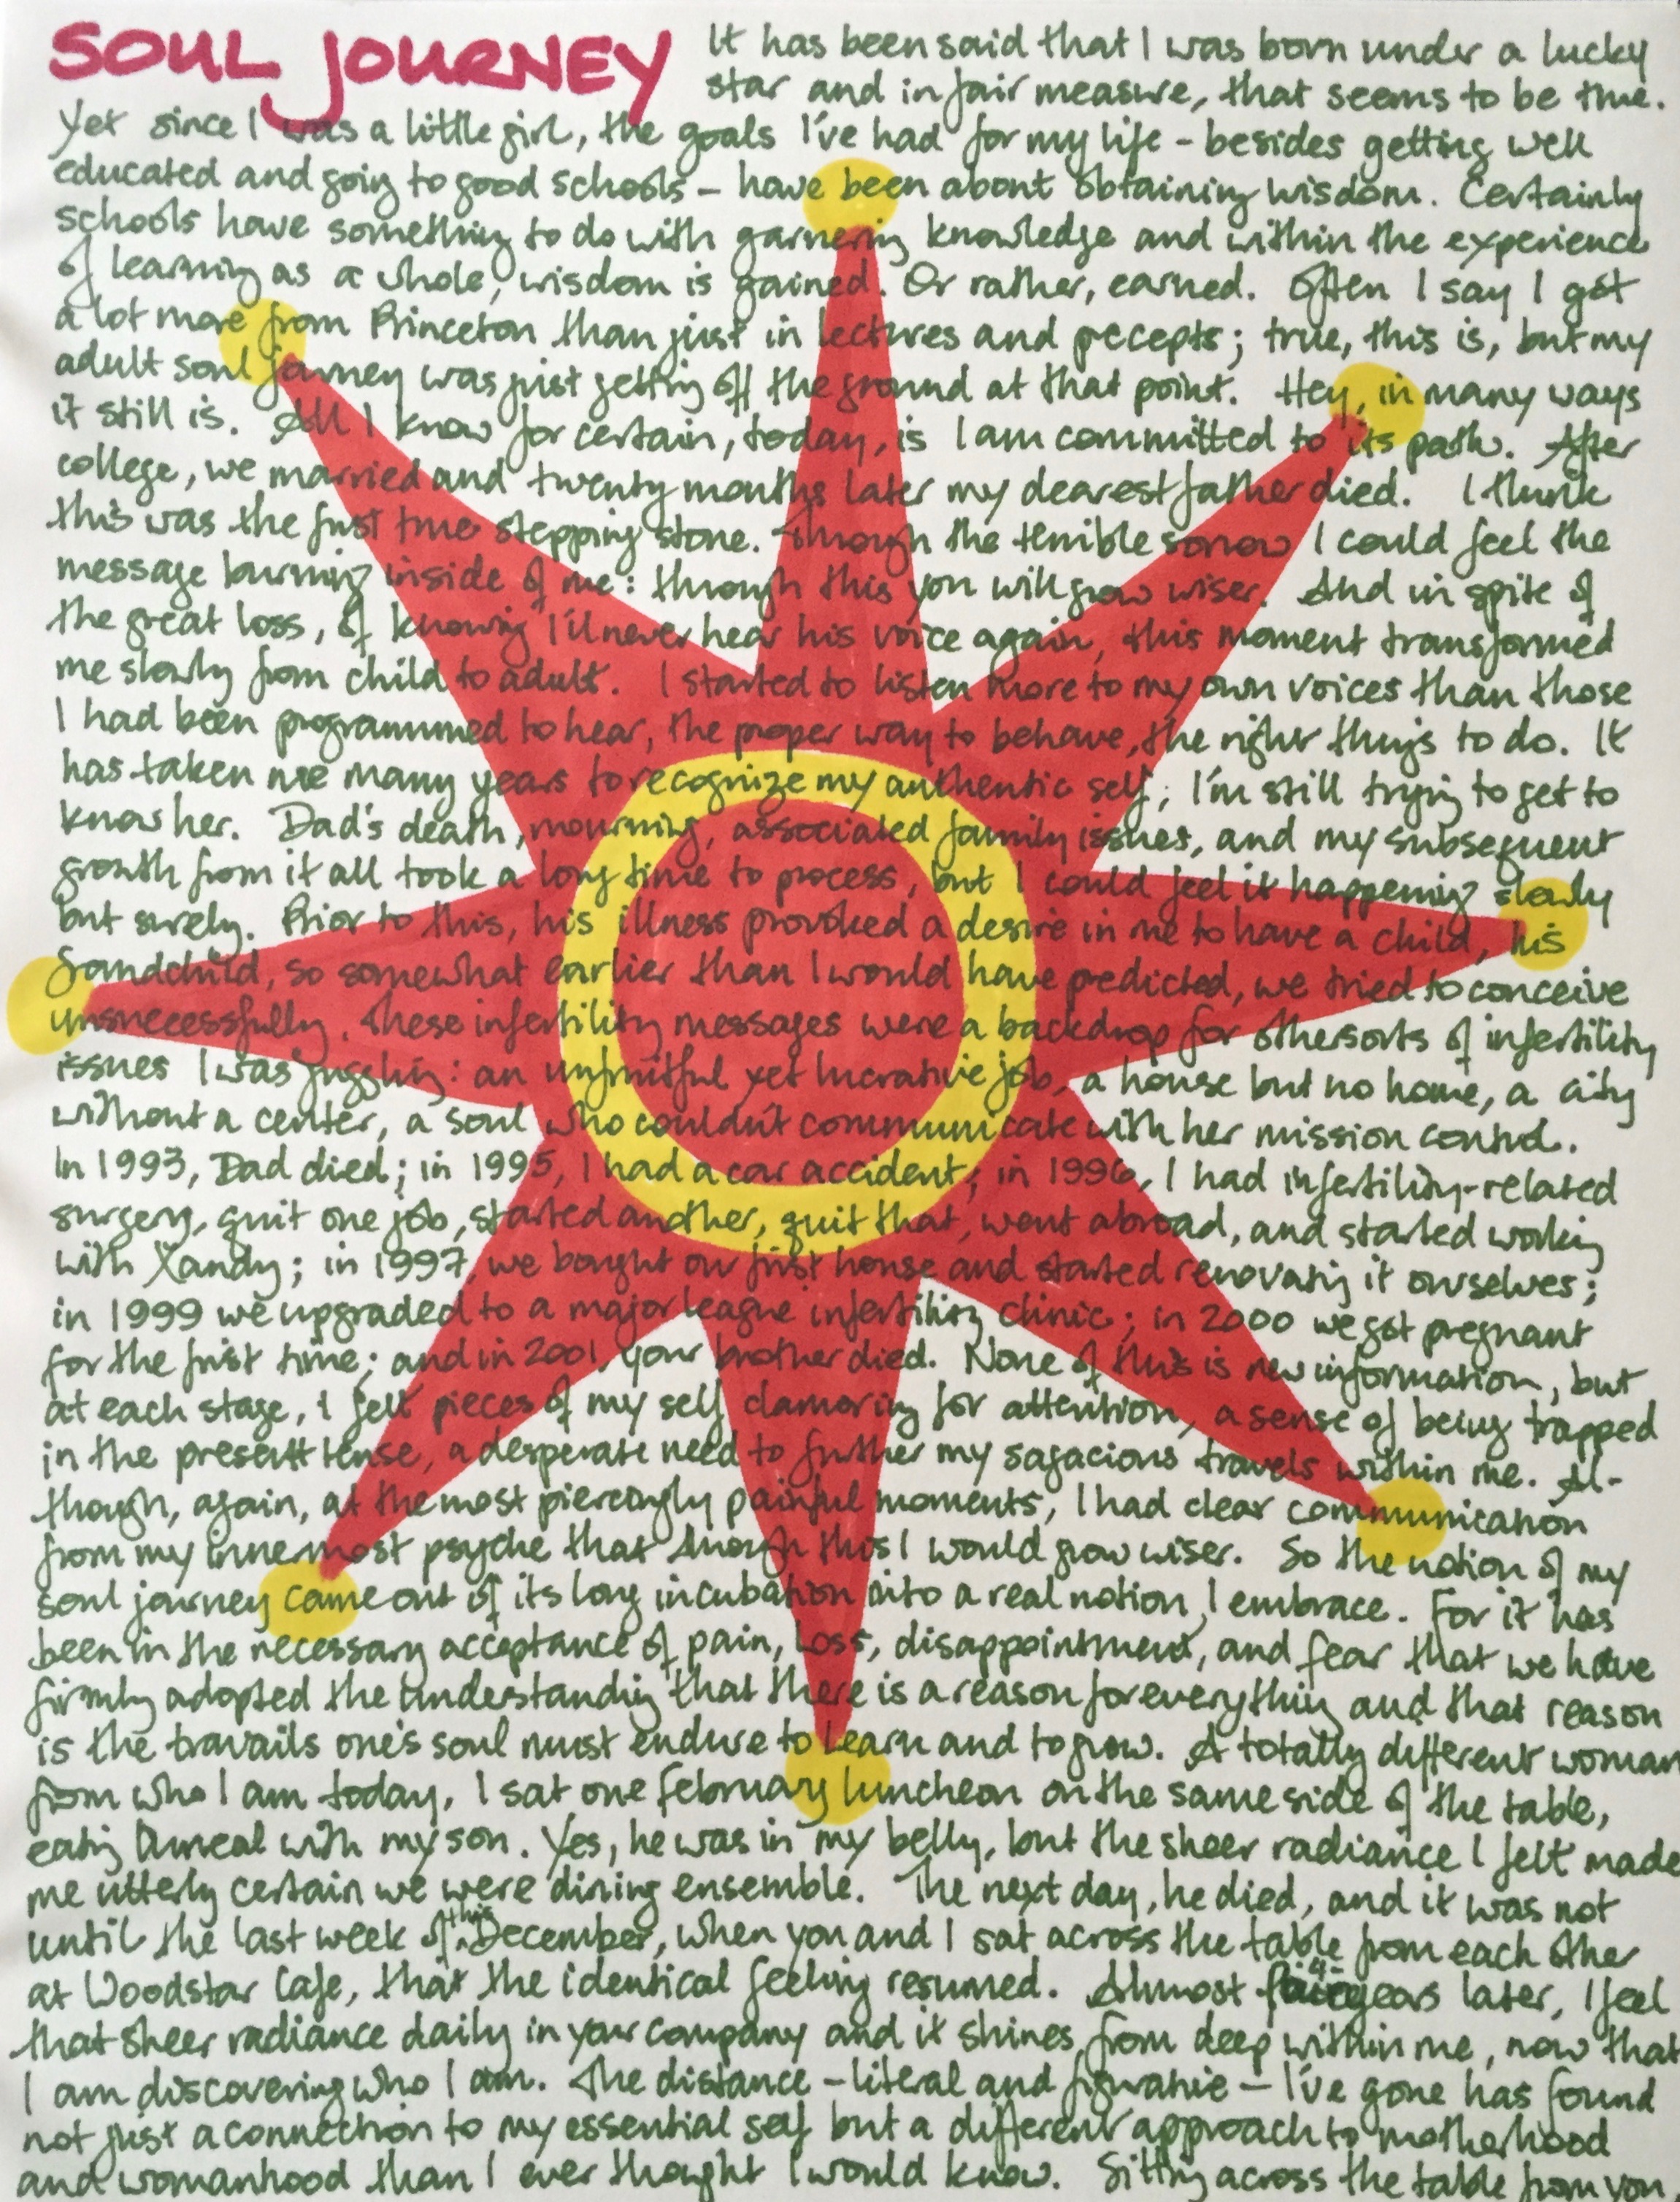 SOUL JOURNEY
It has been said that I was born under a lucky
star and in fair measure, that seems to be true.
Yet since I was a little girl, the goals I've had for my life - besides getting well
educated and going to good schools - have been about obtaining wisdom. Certainly
schools have something to do with garnering knowledge and within the experience
of learning as a whole, wisdom is gained. Or rather, earned. Often I say I got
a lot more from Princeton than just in lectures and precepts; true, this is, but my
adult soul journey was just getting off the ground at that point. Hey, in many ways
it still is. All I know for certain, today, is I am committed to its path. After
college, we married and twenty months later my dearest father died. I think
this was the first true stepping stone. Through the terrible sorrow I could feel the
message burning inside of me: through this you will grow wiser. And in spite of
the great loss, of knowing I'll never hear his voice again, this moment transformed
me slowly from child to adult. I started to listen more to my own voices than those
I had been programmed to hear, the proper way to behave, the right things to do. It
has taken me many years to recognize my authentic self; I'm still trying to get to
know her. Dad's death, mourning, associated family issues, and my subsequent
growth from it all took a long time to process, but I could feel it happening slowly
but surely. Prior to this, his illness provoked a desire in me to have a child, his
grandchild, so somewhat earlier than I would have predicted, we tried to conceive
unsuccessfully. These infertility messages were a backdrop for other sorts of infertility
issues I was juggling: an unfruitful yet lucrative job, a house but no home, a city
without a center, a soul who couldn't communicate with her mission control.
In 1993, Dad died; in 1995, I had a car accident; in 1996, I had infertility-related
surgery, quit one job, started another, quit that, went abroad, and started working
with Xandy; in 1997, we bought our first house and started renovating it ourselves;
in 1999 we upgraded to a major league infertility clinic; in 2000 we got pregnant
for the first time; and in 2001, your brother died. None of this is new information, but
at each stage, I felt pieces of my self clamoring for attention, a sense of being trapped
in the present tense, a desperate need to further my sagacious travels within me. Al-
though, again, at the most piercingly painful moments, I had clear communication
from my innermost psyche that through this I would grow wiser. So the notion of my
soul journey came out of its long incubation into a real notion I embrace. For it has
been in the necessary acceptance of pain, loss, disappointment, and fear that we have
firmly adopted the understanding that there is a reason for everything and that reason
is the travails one's soul must endure to learn and to grow. A totally different woman
from who I am today, I sat one February luncheon on the same side of the table,
eating with my son. Yes, he was in my belly, but the sheer radiance I felt made
me utterly certain we were dining ensemble. The next day, he died, and it was not
until the last week of this December, when you and I sat across the table from each other
at Woodstar Cafe, that the identical feeling resumed. Almost 4 years later, I feel
that sheer radiance daily in your company and it shines from deep within me, now that
I am discovering who I am. The distance - literal and figurative - I've gone has found
not just a connection to my essential self but a different approach to motherhood
and womanhood than I ever thought I would know. Sitting across the table from you,